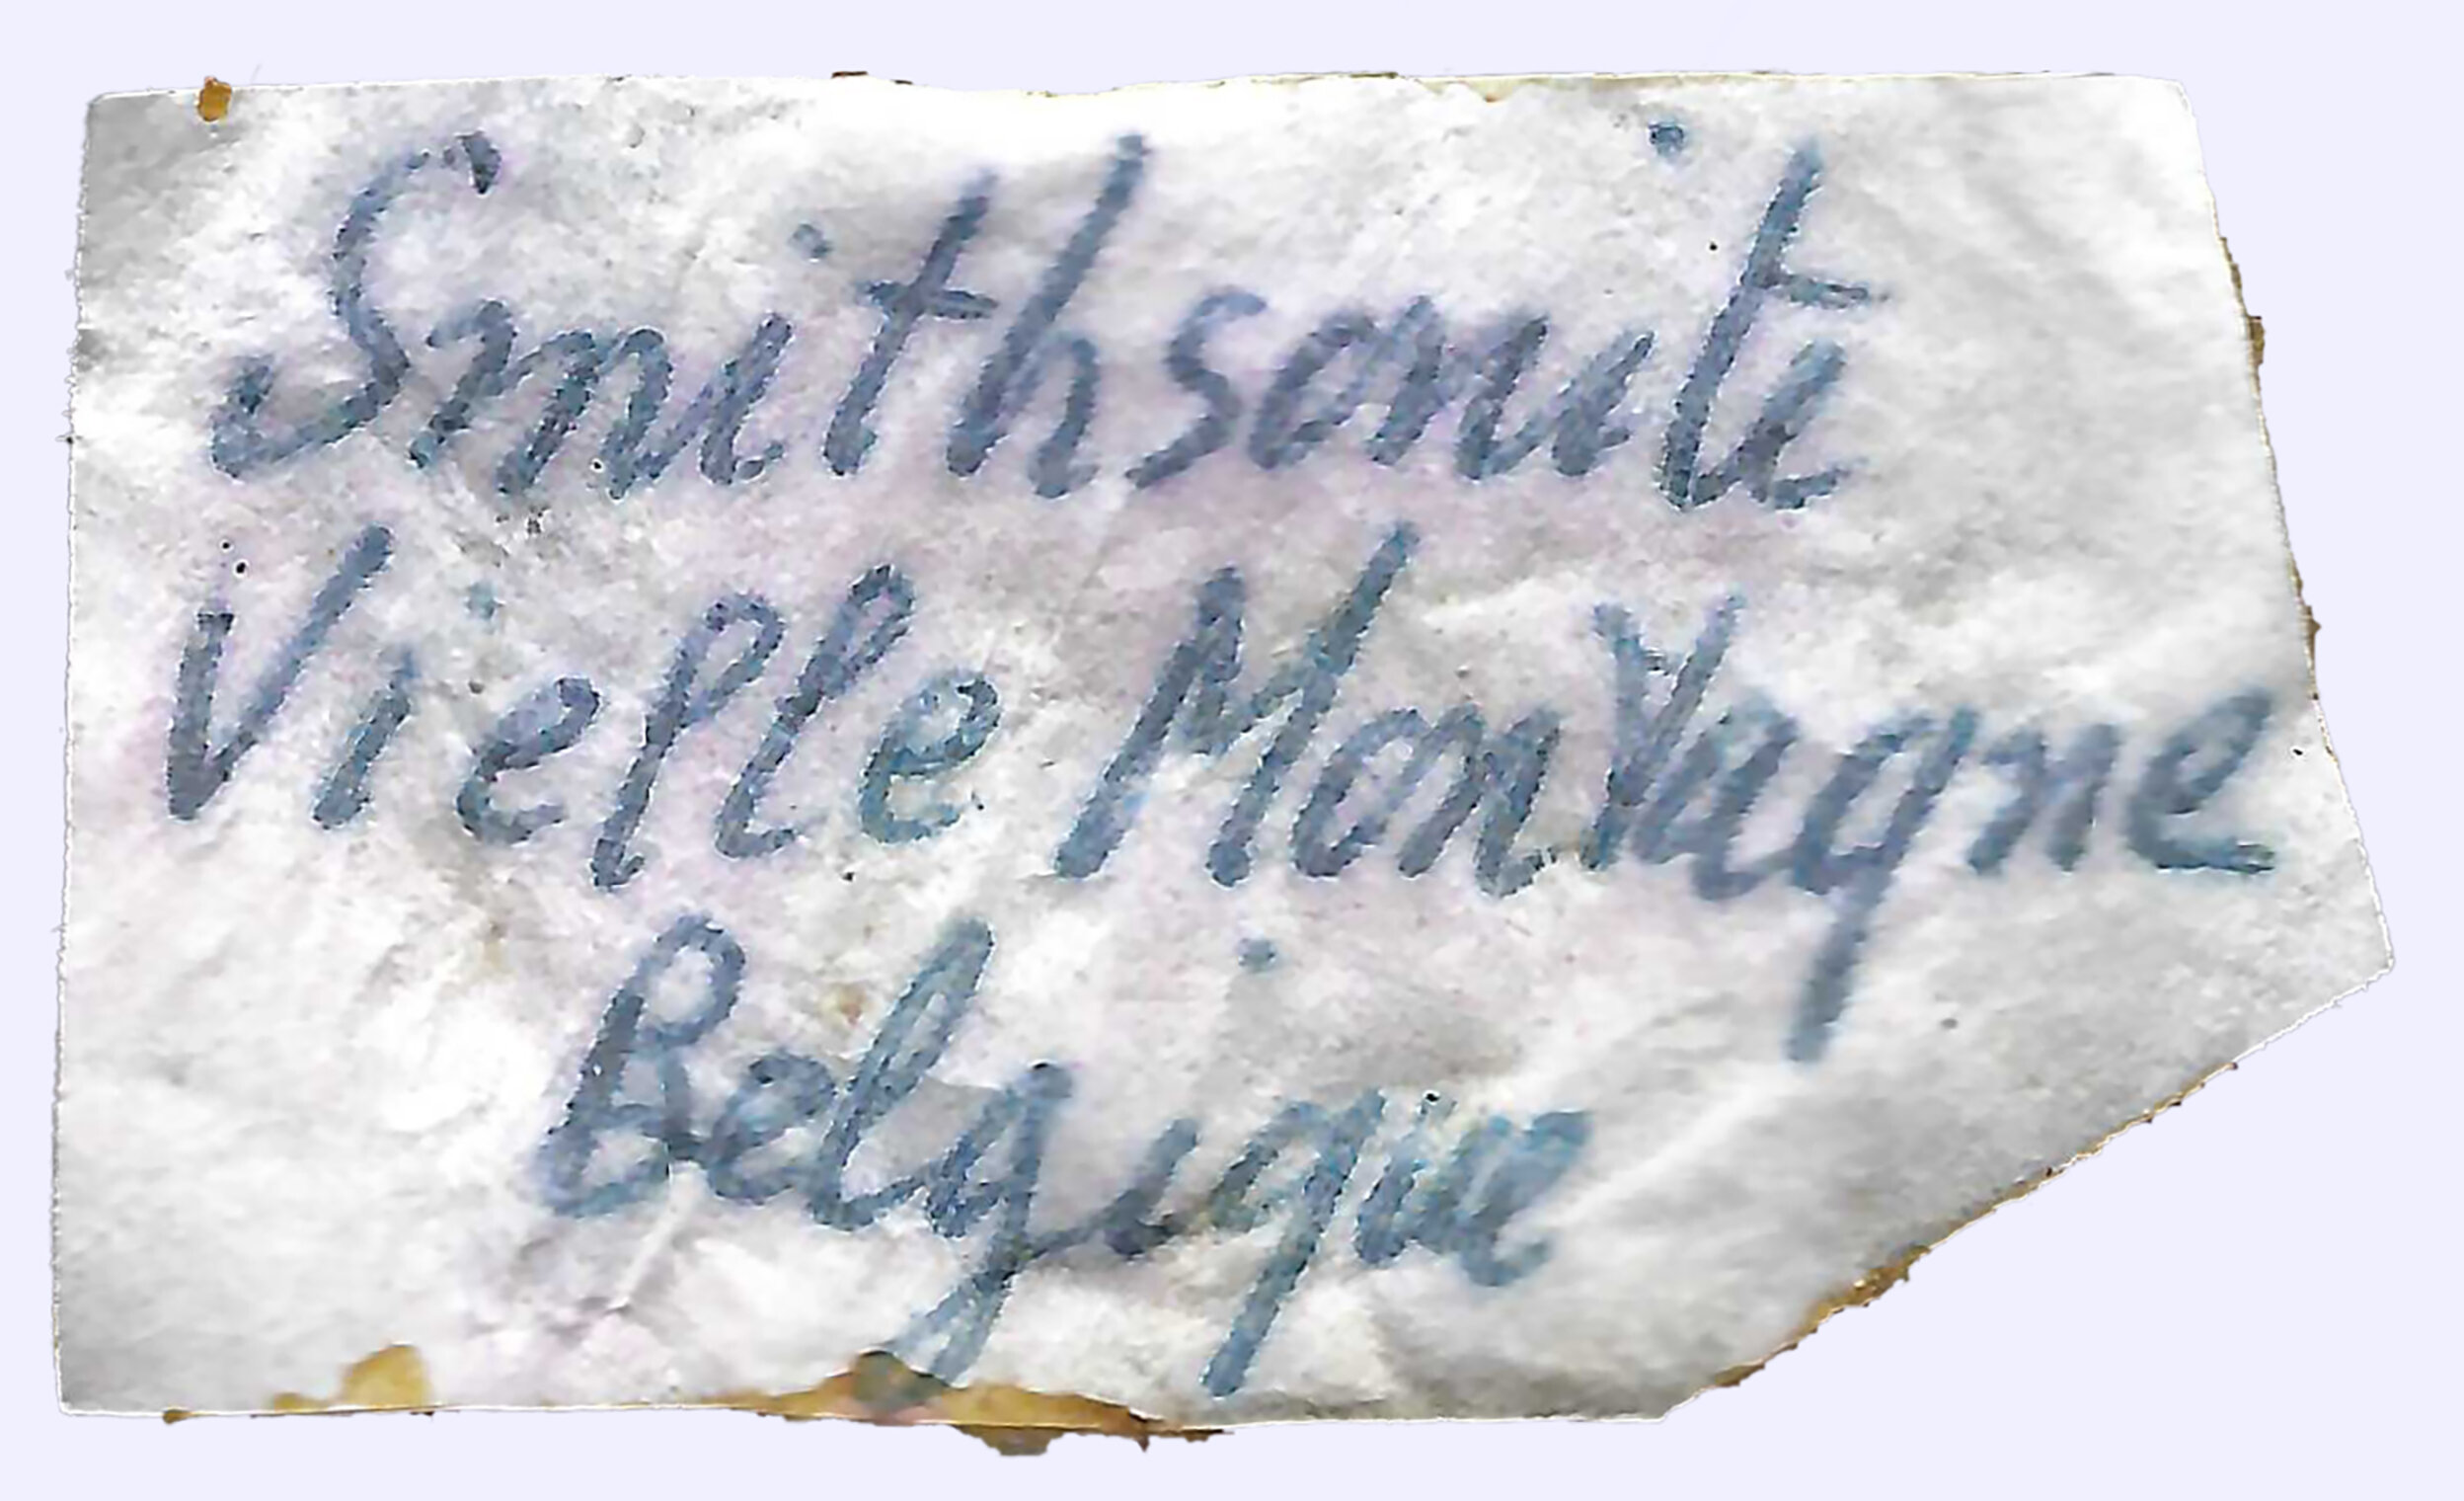 Smithsonite
Vielle Montagne
Belgique